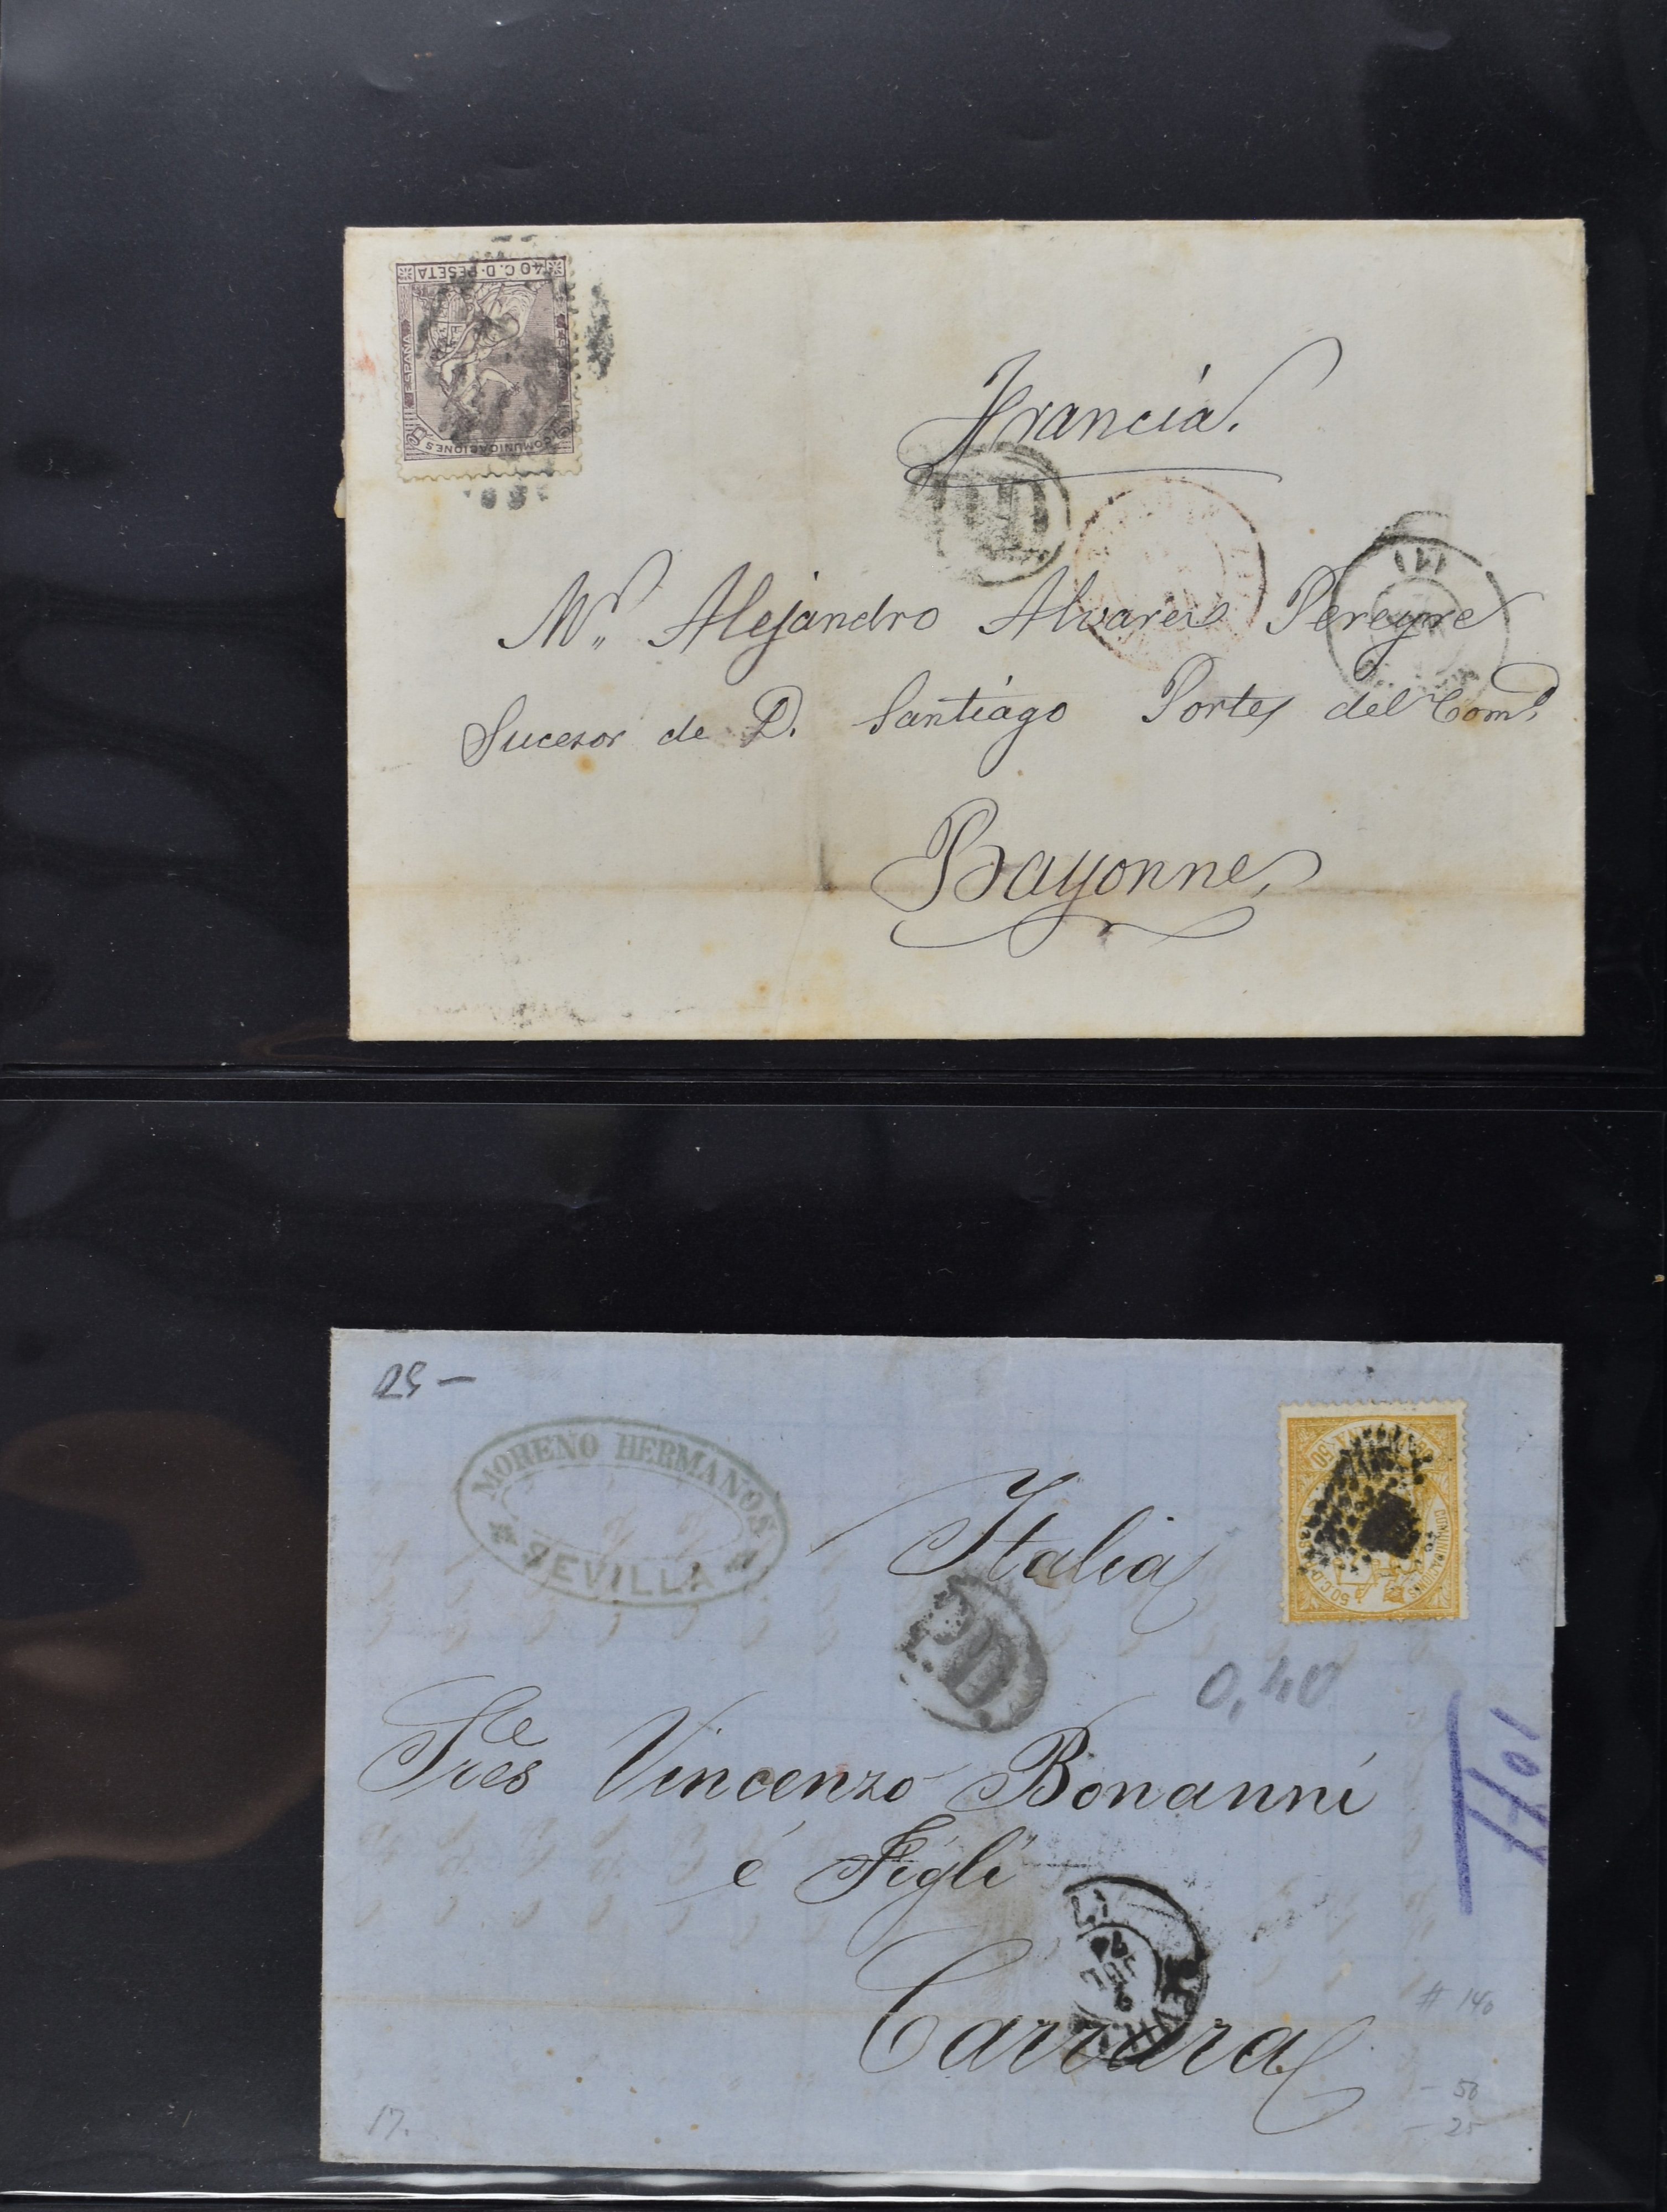 40 C. D. PESETA
ESPAÑA
COMUNICACIONES
Francia.
PD
Mr. Alejandro Alvares Pereyre
Sucesor de D. Santiago Portes del Comº
Bayonne,
25 —
MORENO HERMANOS
SEVILLA
Italia
50 C. D.
P.D.
0,40
Sres Vincenzo Bonanni
é Figli
Carrara
SEVILLA
74
# 140
- 50
- 25
17.